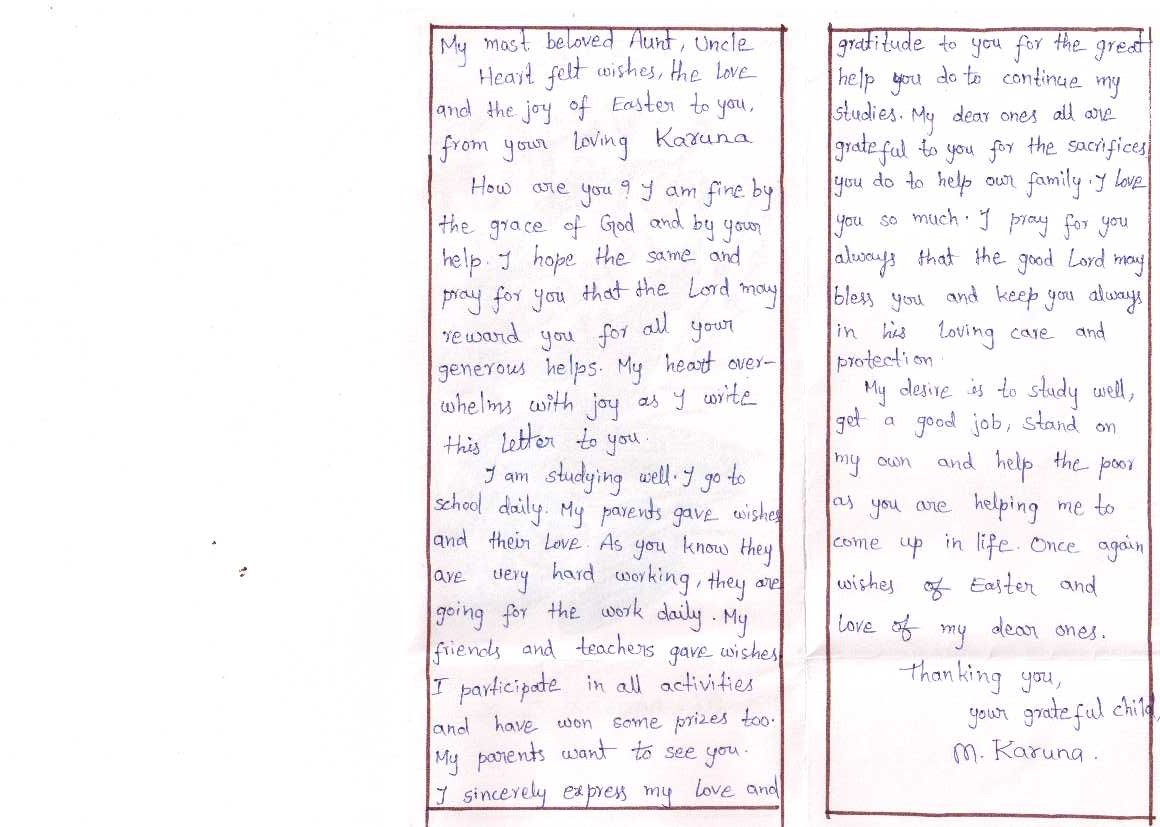 My most beloved Aunt, Uncle
Heart felt wishes, the love
and the joy of Easter to you,
from your loving Karuna
How are you? I am fine by
the grace of God and by your
help. I hope the same and
pray for you that the Lord may
reward you for all your
generous helps. My heart over-
whelms with joy as I write
this letter to you.
I am studying well. I go to
school daily. My parents gave wishes
and their love. As you know they
are very hard working, they are
going for the work daily. My
friends and teachers gave wishes
I participate in all activities
and have won some prizes too.
My parents want to see you.
I sincerely express my love and
gratitude to you for the great
help you do to continue my
studies. My dear ones all are
grateful to you for the sacrifices
you do to help our family. I love
you so much. I pray for you
always that the good Lord may
bless you and keep you always
in his loving care and
protection.
My desire is to study well,
get a good job, stand on
my own and help the poor
as you are helping me to
come up in life. Once again
wishes of Easter and
love of my dear ones.
Thanking you,
your grateful child,
M. Karuna.